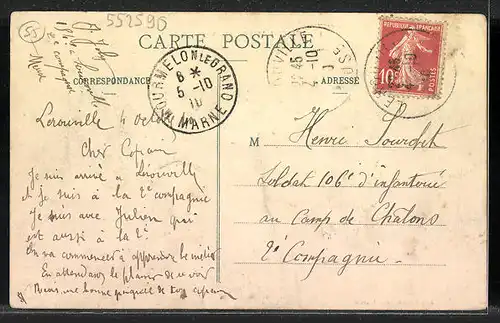 55
552590
CARTE POSTALE
CORRESPONDANCE
ADRESSE
MOURMELON LE GRAND
6 *
5 -10
10
MARNE
REPUBLIQUE FRANÇAISE
10c
POSTES
Lérouville 4 Octobre
Cher Copain
Je suis arrivé à Lérouville
et je suis à la 2e compagnie
je suis avec Julien qui
est aussi à la 2e
On va commencer à apprendre le métier
En attendant le plaisir de te voir
Reçois une bonne poignée de ton copain
M Henri
Soldat 106e d'infanterie
au Camp de Chalons
2e Compagnie